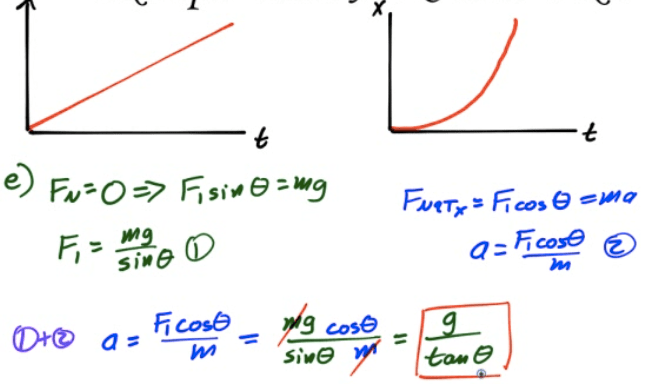 x
t
t
e) F_N = 0 => F₁ sin θ = mg
F₁ = mg/sin θ ①
F_NETx = F₁ cos θ = ma
a = F₁ cos θ/m ②
①+② a = F₁ cos θ/m = mg cos θ/sin θ m = g/tan θ